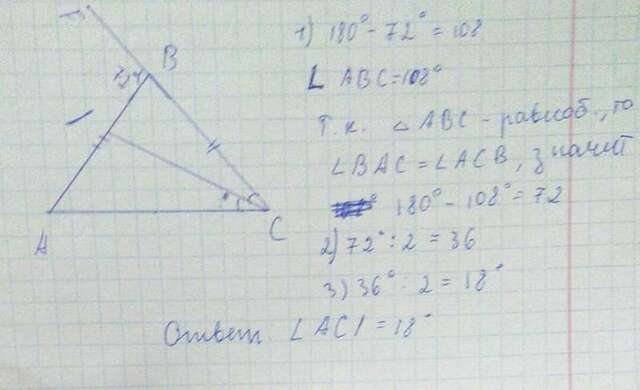 1) 180° - 72° = 108
∠ ABC = 108°
Т.к. △ ABC - равноб., то
∠BAC = ∠ACB, значит
180° - 108° = 72
2) 72° : 2 = 36
3) 36° : 2 = 18°
Ответ ∠ACI = 18°
B
A
C